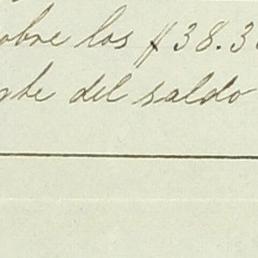 sobre los $38.3
del saldo